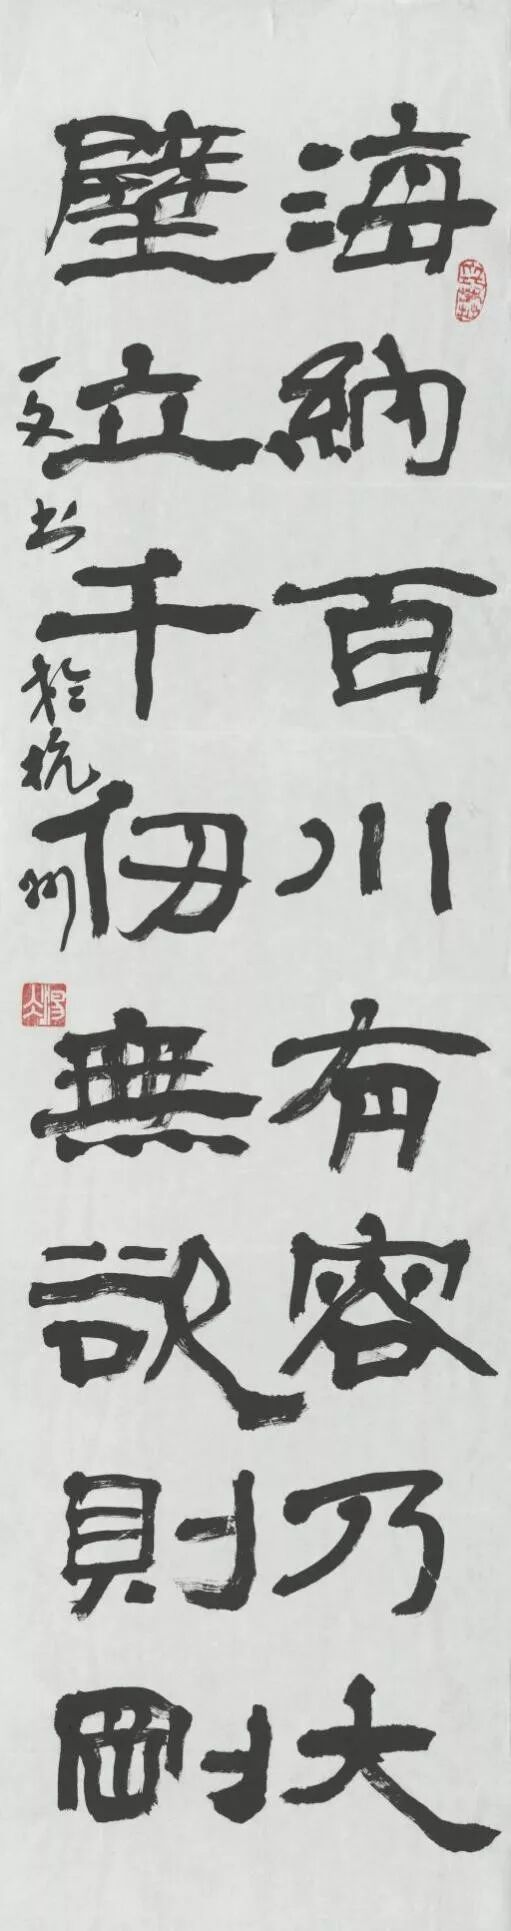 海納百川有容乃大
壁立千仞無欲則剛
一文书於杭州